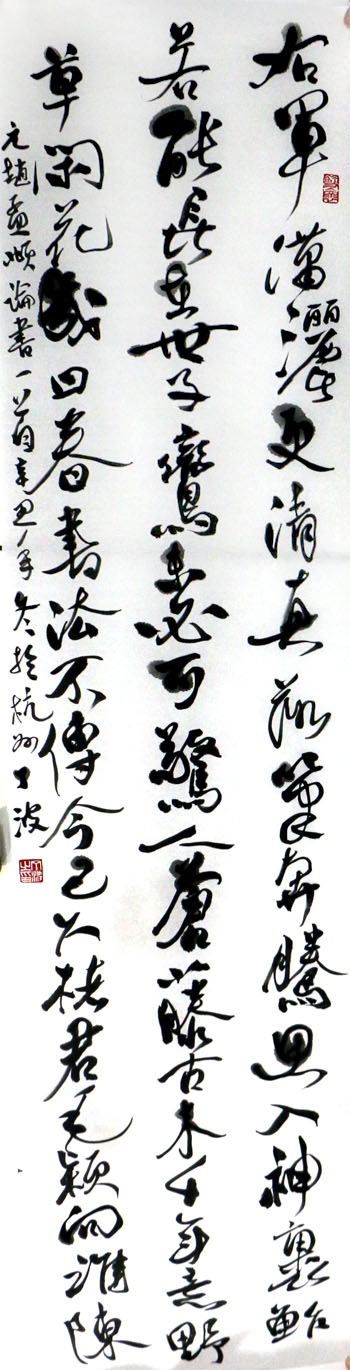 右軍瀟灑更清真落筆奔騰思入神裹鮓
若能長在世子鸞未必可驚人蒼藤古木千年意野
草閑花幾日春書法不傳今已久楮君毛穎向誰陳
元趙孟頫論書一首辛丑年冬於杭州丁波